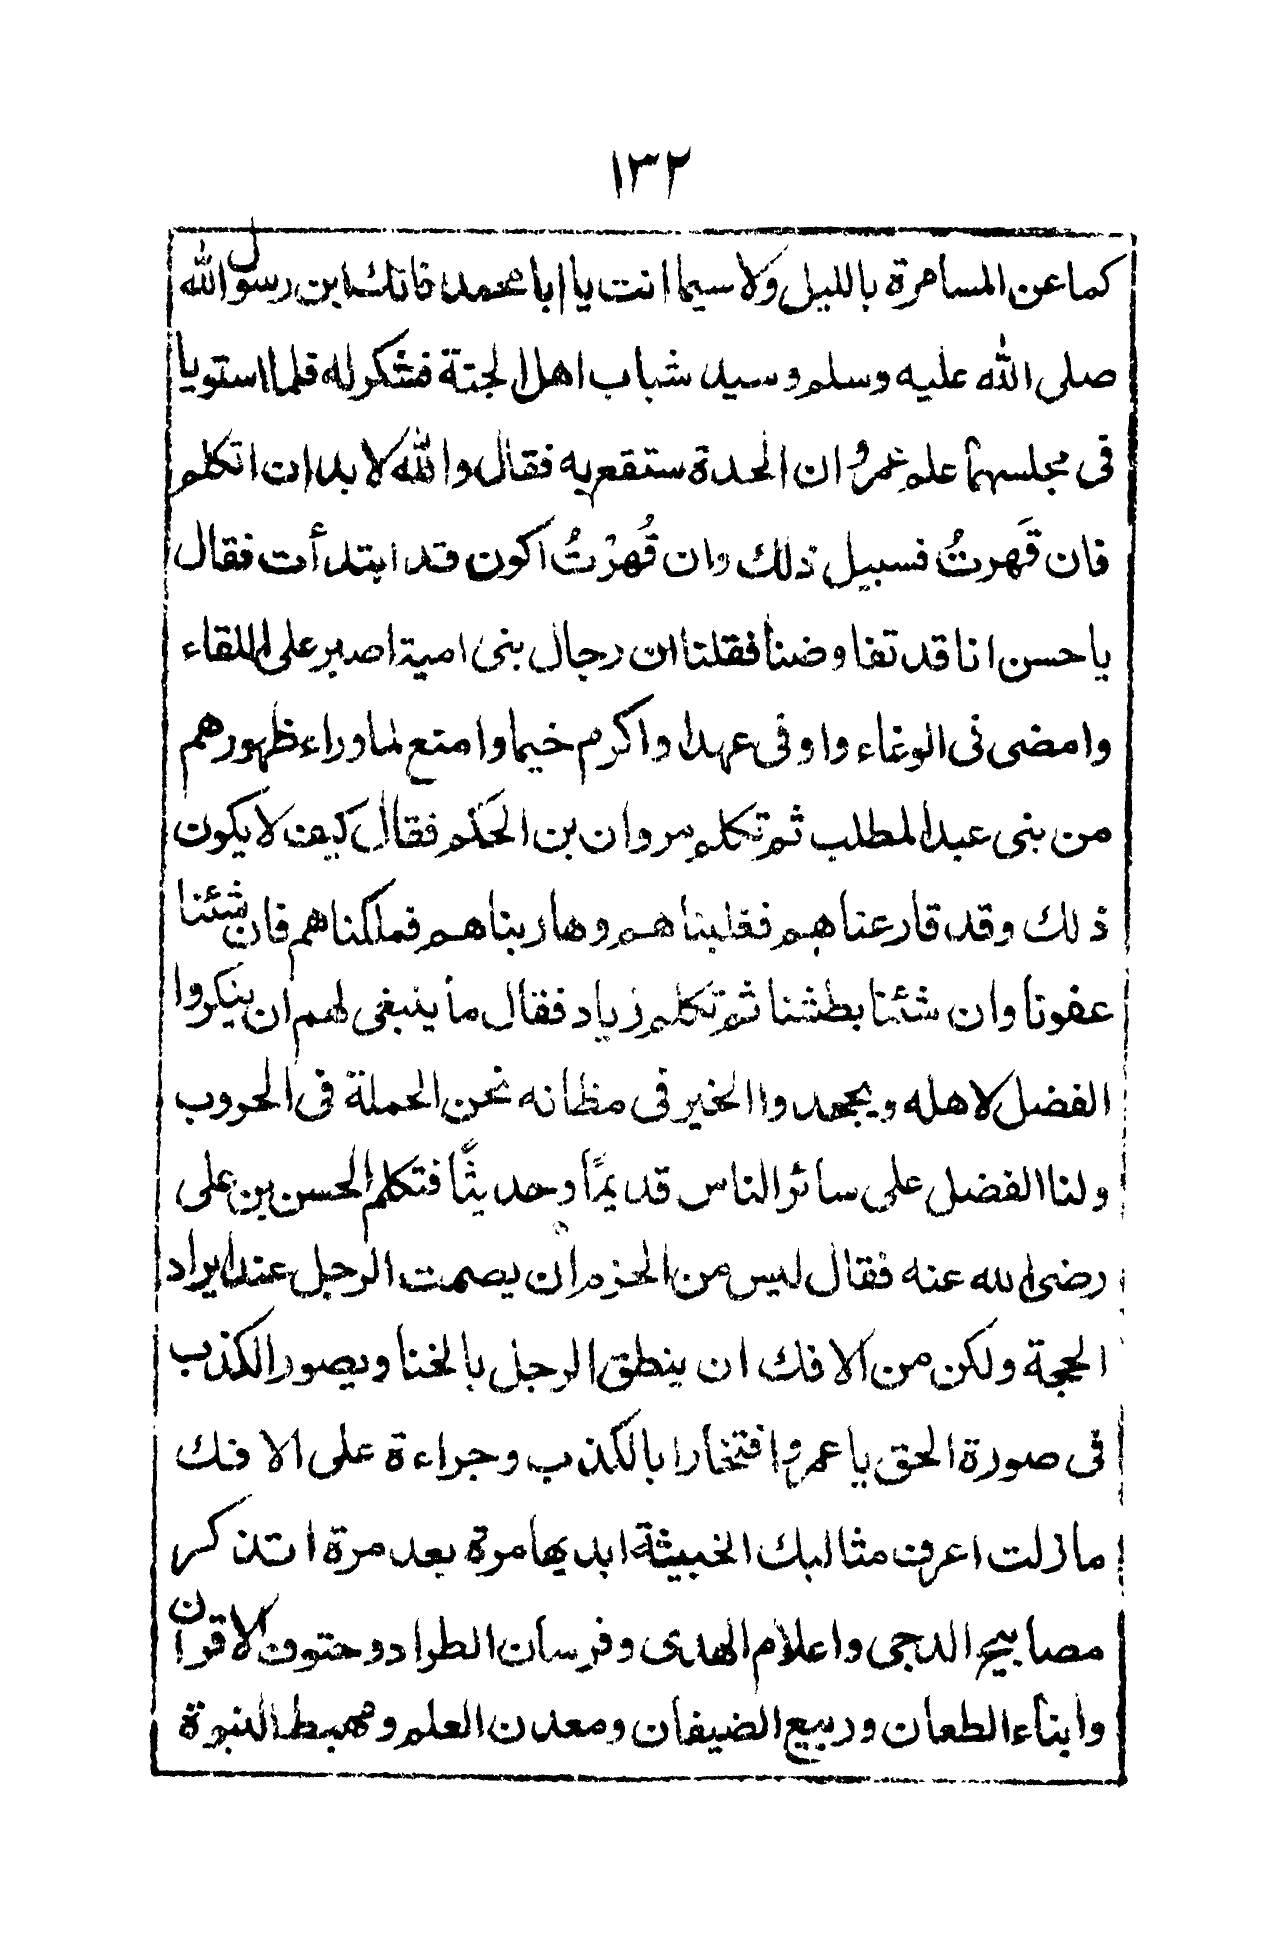 ١٣٢
كما عن المساهرة بالليل ولا سيما انت يا ابا محمد فانك ابن رسول الله
صلى الله عليه وسلم وسيد شباب اهل الجنة فشكر له فلما استويا
فى مجلسهما علم عمرو ان الحدة ستقع به فقال والله لا بد ان اتكلم
فان قَهرتُ فسبيل ذلك وان قُهِرْتُ اكون قد ابتدأت فقال
يا حسن انا قد تفاوضنا فقلنا ان رجال بنى امية اصبر على اللقاء
وامضى فى الوغاء واوفى عهدا واكرم خيما وامنع لما وراء ظهورهم
من بنى عبد المطلب ثم تكلم مروان بن الحَكَم فقال كيف لا يكون
ذلك وقد قارعناهم فغلبناهم وحاربناهم فملكناهم فان شئنا
عفونا وان شئنا بطشنا ثم تكلم زياد فقال ما ينبغى لهم ان ينكروا
الفضل لاهله ويجحدوا الخير فى مظانه نحن الحملة فى الحروب
ولنا الفضل على سائر الناس قديمًا وحديثًا فتكلم الحسن بن على
رضى الله عنه فقال ليس من الحزم ان يصمت الرجل عند ايراد
الحجة ولكن من الافك ان ينطق الرجل بالخنا ويصور الكذب
فى صورة الحق يا عمرو افتخارا بالكذب وجراءة على الافك
ما زلت اعرف مثالبك الخبيثة ابديها مرة بعد مرة اتذكر
مصابيح الدجى واعلام الهدى وفرسان الطراد وحتوف الاقران
وابناء الطعان وربيع الضيفان ومعدن العلم ومهبط النبوة